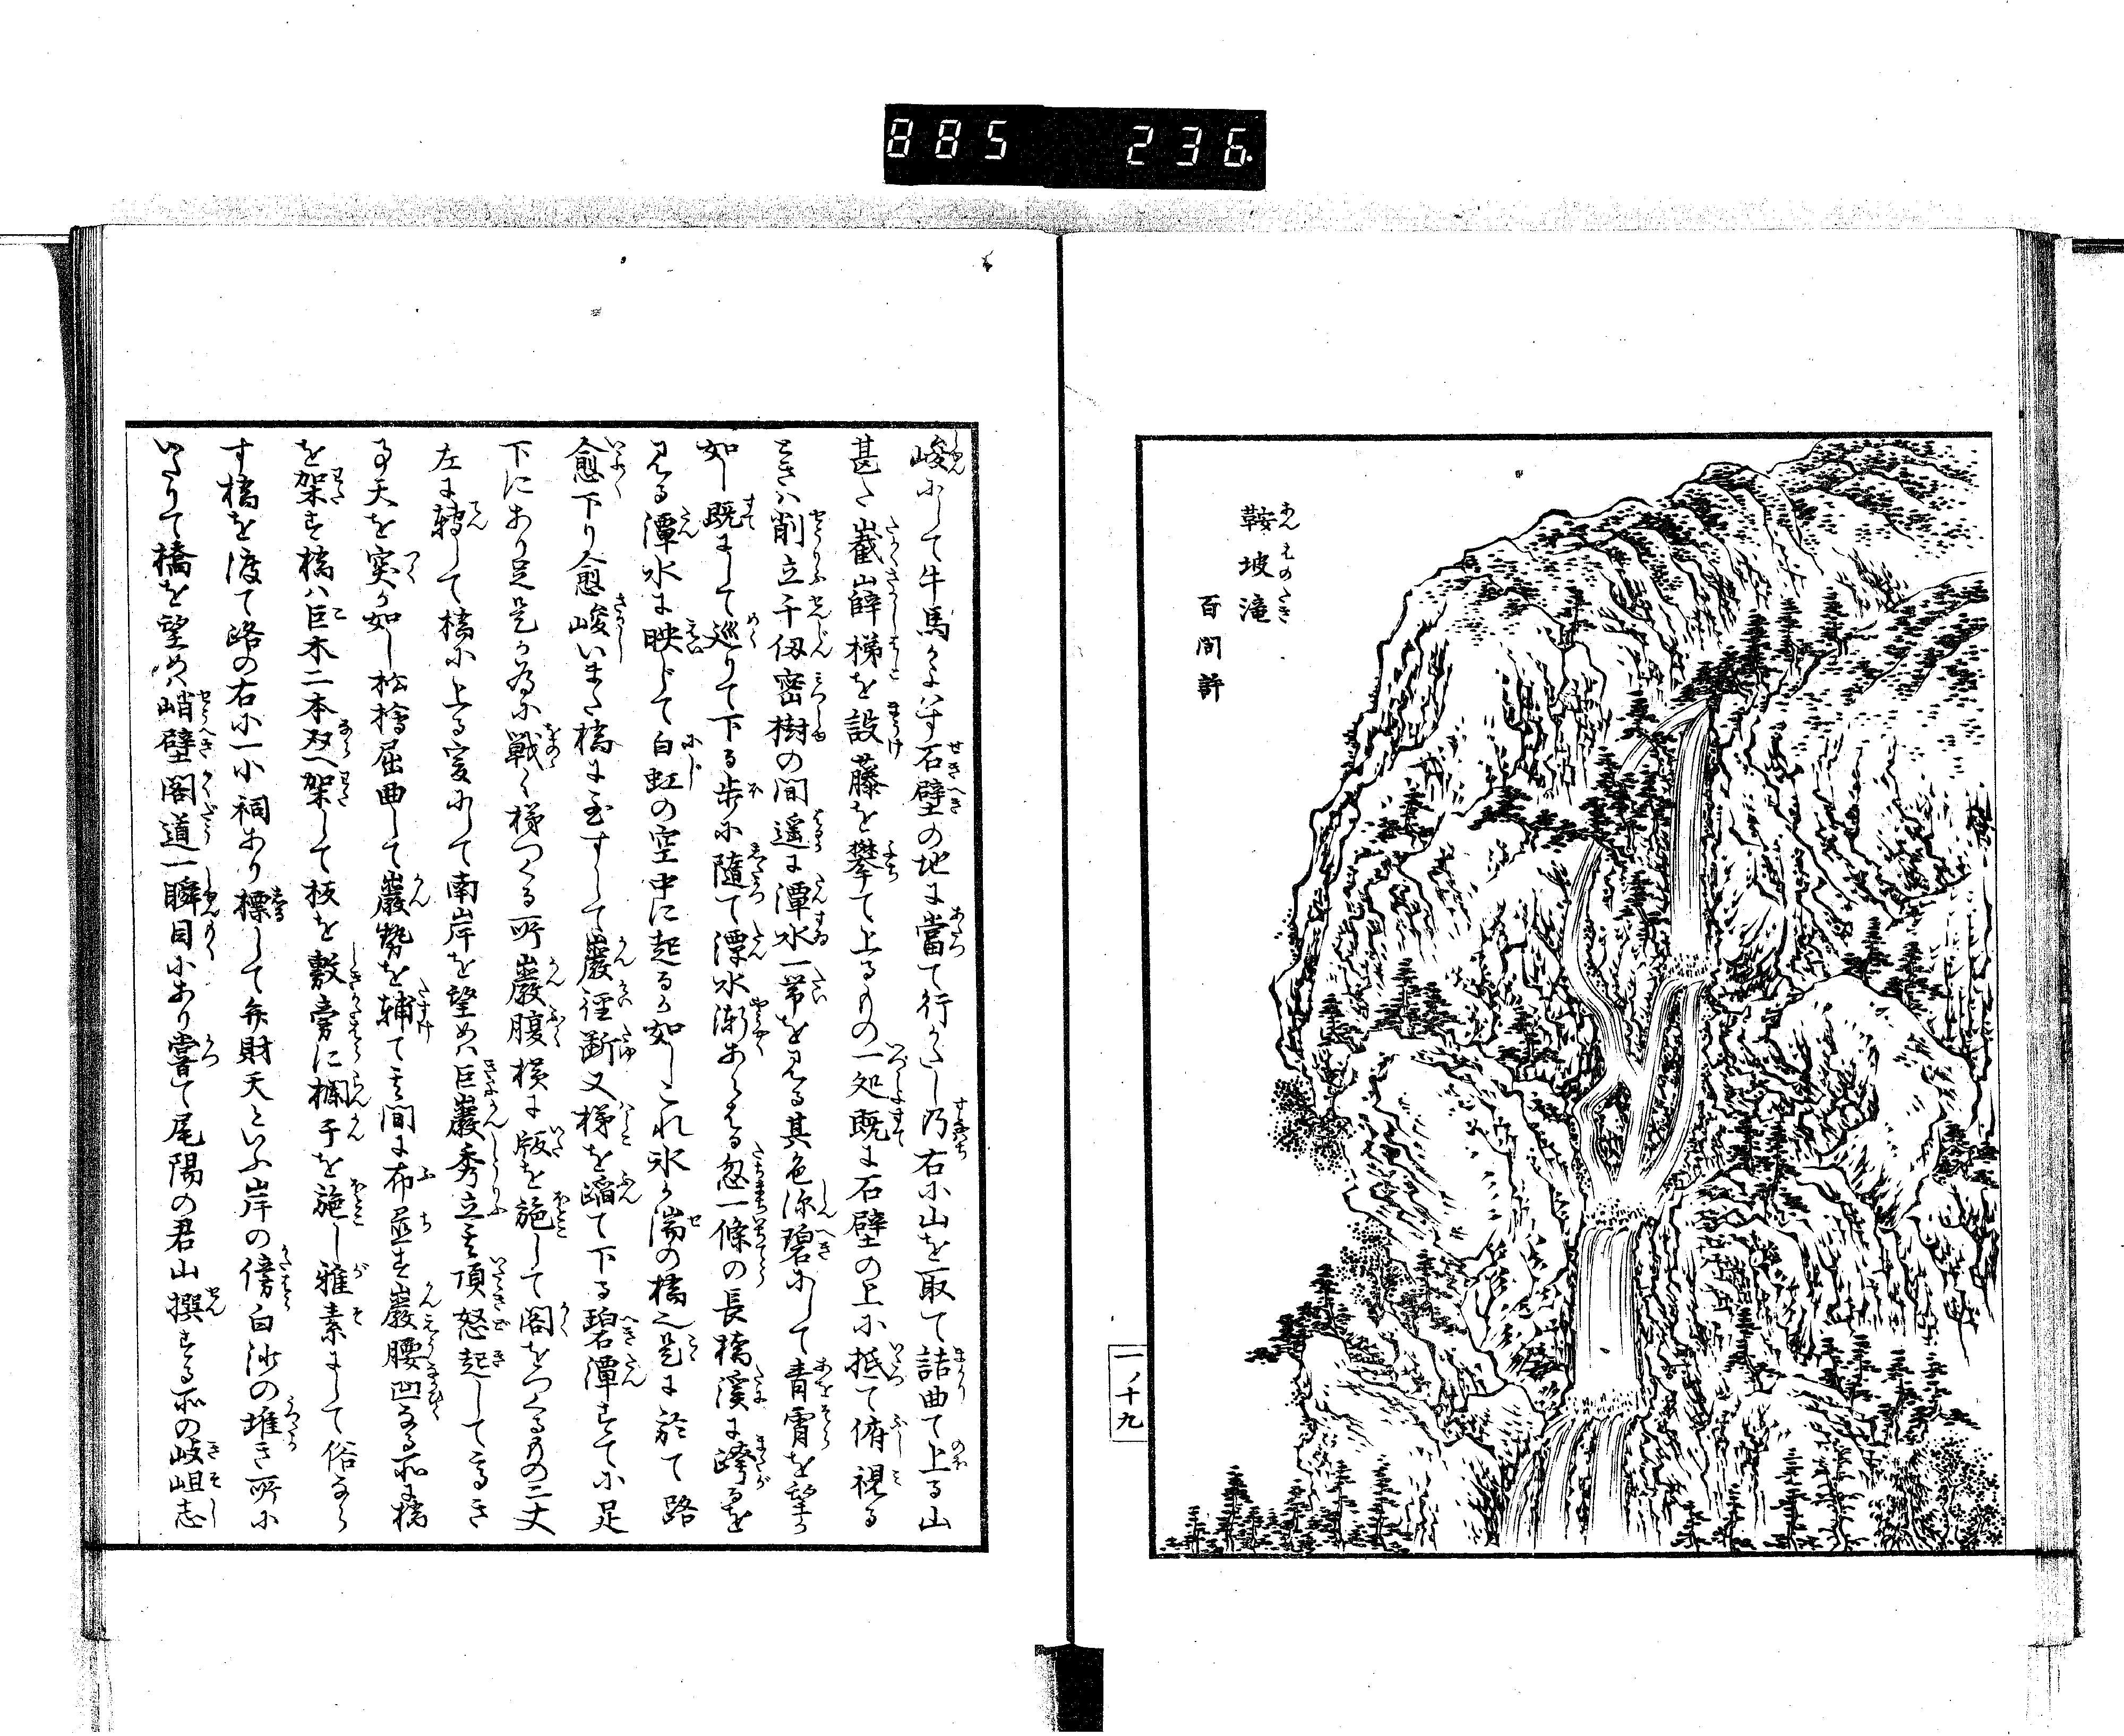 885 236.
鞍坡滝
百間許
一ノ十九
峻にして牛馬かよはす石壁の地に當て行かたし乃右小山を取て詰曲て上る山
甚た嶻嶭梯を設藤を攀て上るもの一処既に石壁の上に抵て俯視る
ときハ削立千仭密樹の間遥に潭水一帯を見る其色深碧にして青霄を望か
如し既にして巡りて下る歩に隨て潭水漸あらはる忽一條の長橋溪に跨るを
見る潭水に映して白虹の空中に起るか如しこれ氷か湍の橋也是に於て路
愈下り愈峻いまた橋に至すして巖徑断又梯を蹈て下る碧潭すて小足
下にあり足是か為に戦く梯つくる所巖腹横に版を施して閣をつくるもの二丈
左に轉して橋に上る爰にして南岸を望めハ巨巖秀立其頂怒起して高き
事天を突か如し松檜屈曲して巖勢を輔て其間に布並す巖腰凹なる所に橋
を架す橋ハ巨木二本双へ架して板を敷旁に欄干を施し雅素にして俗なら
す橋を渡て路の右に一小祠あり標して弁財天といふ岸の傍白沙の堆き所に
いたりて橋を望めは峭壁閣道一瞬目にあり嘗て尾陽の君山撰する所の岐岨志